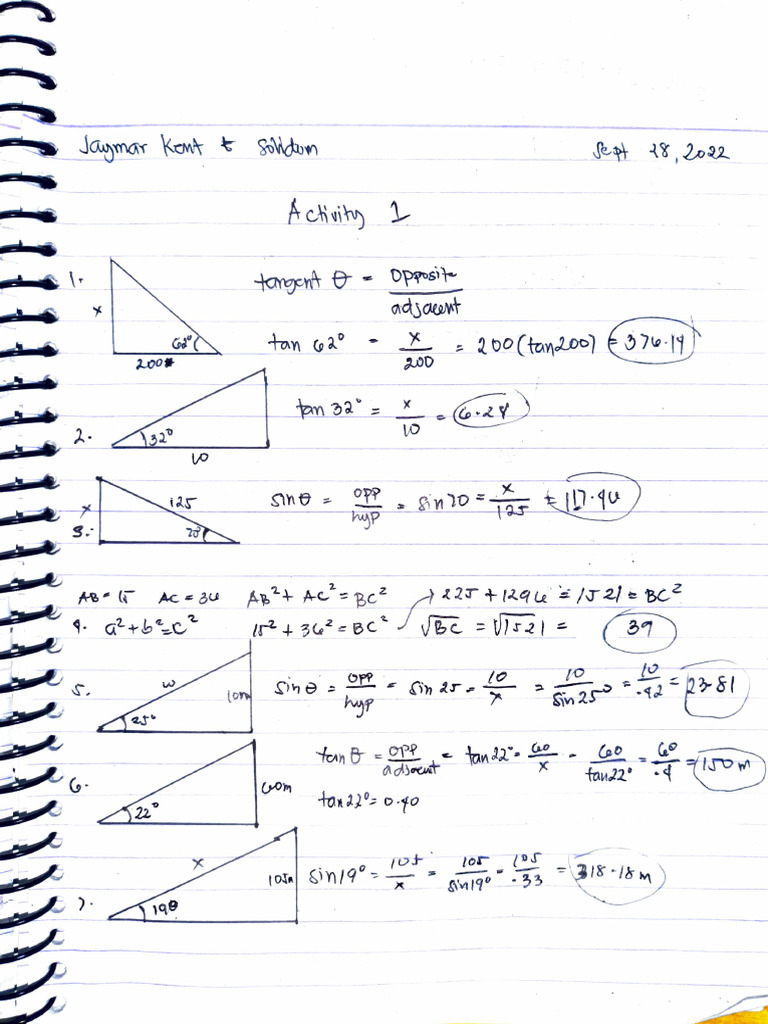 Jaymar Kent Sept 28, 2022
Activity 1
1.
x
62°
200
tangent θ = opposite / adjacent
tan 62° = x/200 = 200(tan200) = 376.14
2.
32°
10
tan 32° = x/10 = 6.24
3.
x
125
70°
sin θ = opp/hyp = sin 70 = x/125 = 117.46
AB = 15 AC = 36 AB² + AC² = BC² → 225 + 1296 = 1521 = BC²
4. a² + b² = c² 15² + 36² = BC² √BC = √1521 = 39
5.
w
10m
25°
sin θ = opp/hyp = sin 25 = 10/x = 10/sin25° = 10/.42 = 23.81
6.
60m
22°
tan θ = opp/adjacent = tan22° = 60/x = 60/tan22° = 60/.4 = 150m
tan22° = 0.40
7.
x
105m
19θ
sin 19° = 105/x = 105/sin19° = 105/.33 = 318.18m